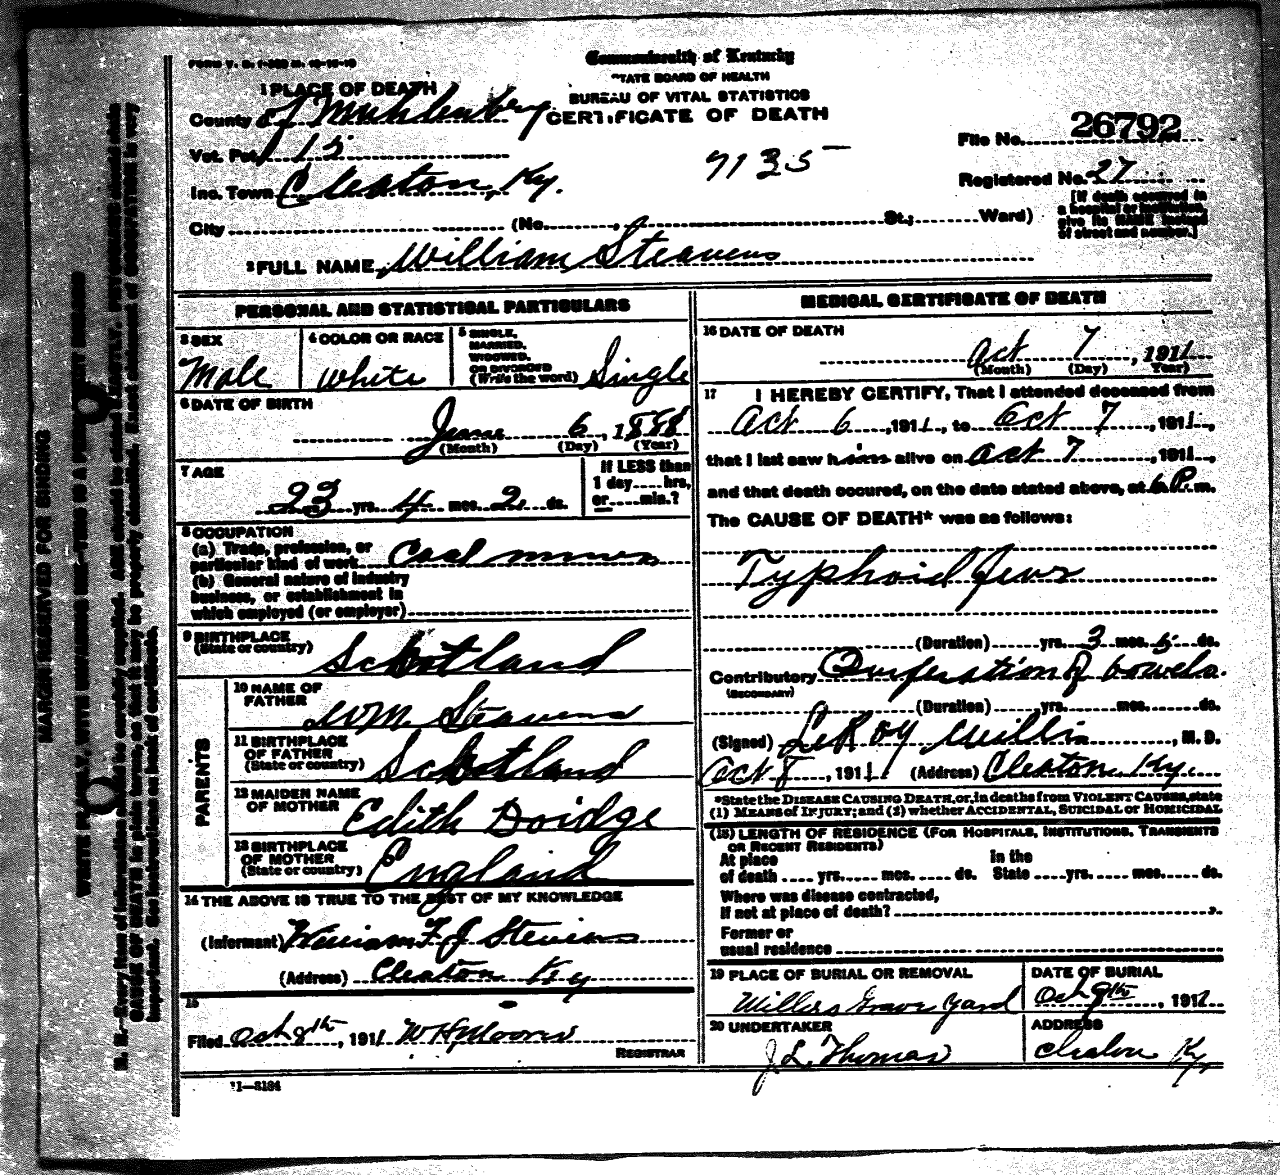 FORM V. S. 1
Commonwealth of Kentucky
STATE BOARD OF HEALTH
BUREAU OF VITAL STATISTICS
CERTIFICATE OF DEATH
1 PLACE OF DEATH
County of Muhlenberg
Vot. Pct 15
Inc. Town Cleaton, Ky.
City (No. St.; Ward)
7135
File No. 26792
Registered No. 27
[If death occurred in
a hospital or institution,
give its NAME instead
of street and number.]
2 FULL NAME William Steavens
PERSONAL AND STATISTICAL PARTICULARS
3 SEX
Male
4 COLOR OR RACE
White
5 SINGLE,
MARRIED,
WIDOWED,
OR DIVORCED
(Write the word) Single
6 DATE OF BIRTH
June 6, 1888
(Month) (Day) (Year)
7 AGE
23 yrs. 4 mos. 2 ds.
If LESS than
1 day....hrs,
or....min.?
8 OCCUPATION
(a) Trade, profession, or
particular kind of work Coal miner
(b) General nature of industry
business, or establishment in
which employed (or employer)
9 BIRTHPLACE
(State or country) Scotland
PARENTS
10 NAME OF
FATHER Wm. Steavens
11 BIRTHPLACE
OF FATHER
(State or country) Scotland
12 MAIDEN NAME
OF MOTHER Edith Doidge
13 BIRTHPLACE
OF MOTHER
(State or country) England
14 THE ABOVE IS TRUE TO THE BEST OF MY KNOWLEDGE
(Informant) William F J Stevens
(Address) Cleaton Ky
15
Filed Oct 8th, 1911 W H Moore
REGISTRAR
11—3184
MEDICAL CERTIFICATE OF DEATH
16 DATE OF DEATH
Oct 7, 1911
(Month) (Day) (Year)
17 I HEREBY CERTIFY, That I attended deceased from
Oct 6, 1911, to Oct 7, 1911,
that I last saw him alive on Oct 7, 1911,
and that death occured, on the date stated above, at 6 P.m.
The CAUSE OF DEATH* was as follows:
Typhoid Fever
(Duration) yrs. 3 mos. 5 ds.
Contributory of bowels.
(SECONDARY)
(Duration) yrs. mos. ds.
(Signed) LeRoy Willis, M. D.
Oct 8, 1911 (Address) Cleaton Ky.
*State the DISEASE CAUSING DEATH, or, in deaths from VIOLENT CAUSES, state
(1) MEANS OF INJURY; and (2) whether ACCIDENTAL, SUICIDAL OF HOMICIDAL
(18) LENGTH OF RESIDENCE (FOR HOSPITALS, INSTITUTIONS, TRANSIENTS
OR RECENT RESIDENTS)
At place In the
of death yrs. mos. ds. State yrs. mos. ds.
Where was disease contracted,
If not at place of death?
Former or
usual residence
19 PLACE OF BURIAL OR REMOVAL
Willers Grave Yard
DATE OF BURIAL
Oct 9th, 1911
20 UNDERTAKER
J L Thomas
ADDRESS
Cleaton Ky,
MARGIN RESERVED FOR BINDING
WRITE PLAINLY, WITH UNFADING INK—THIS IS A PERMANENT RECORD
N. B.—Every item of information should be carefully supplied. AGE should be stated EXACTLY. PHYSICIANS should state
CAUSE OF DEATH in plain terms, so that it may be properly classified. Exact statement of OCCUPATION is very
important. See instructions on back of certificate.